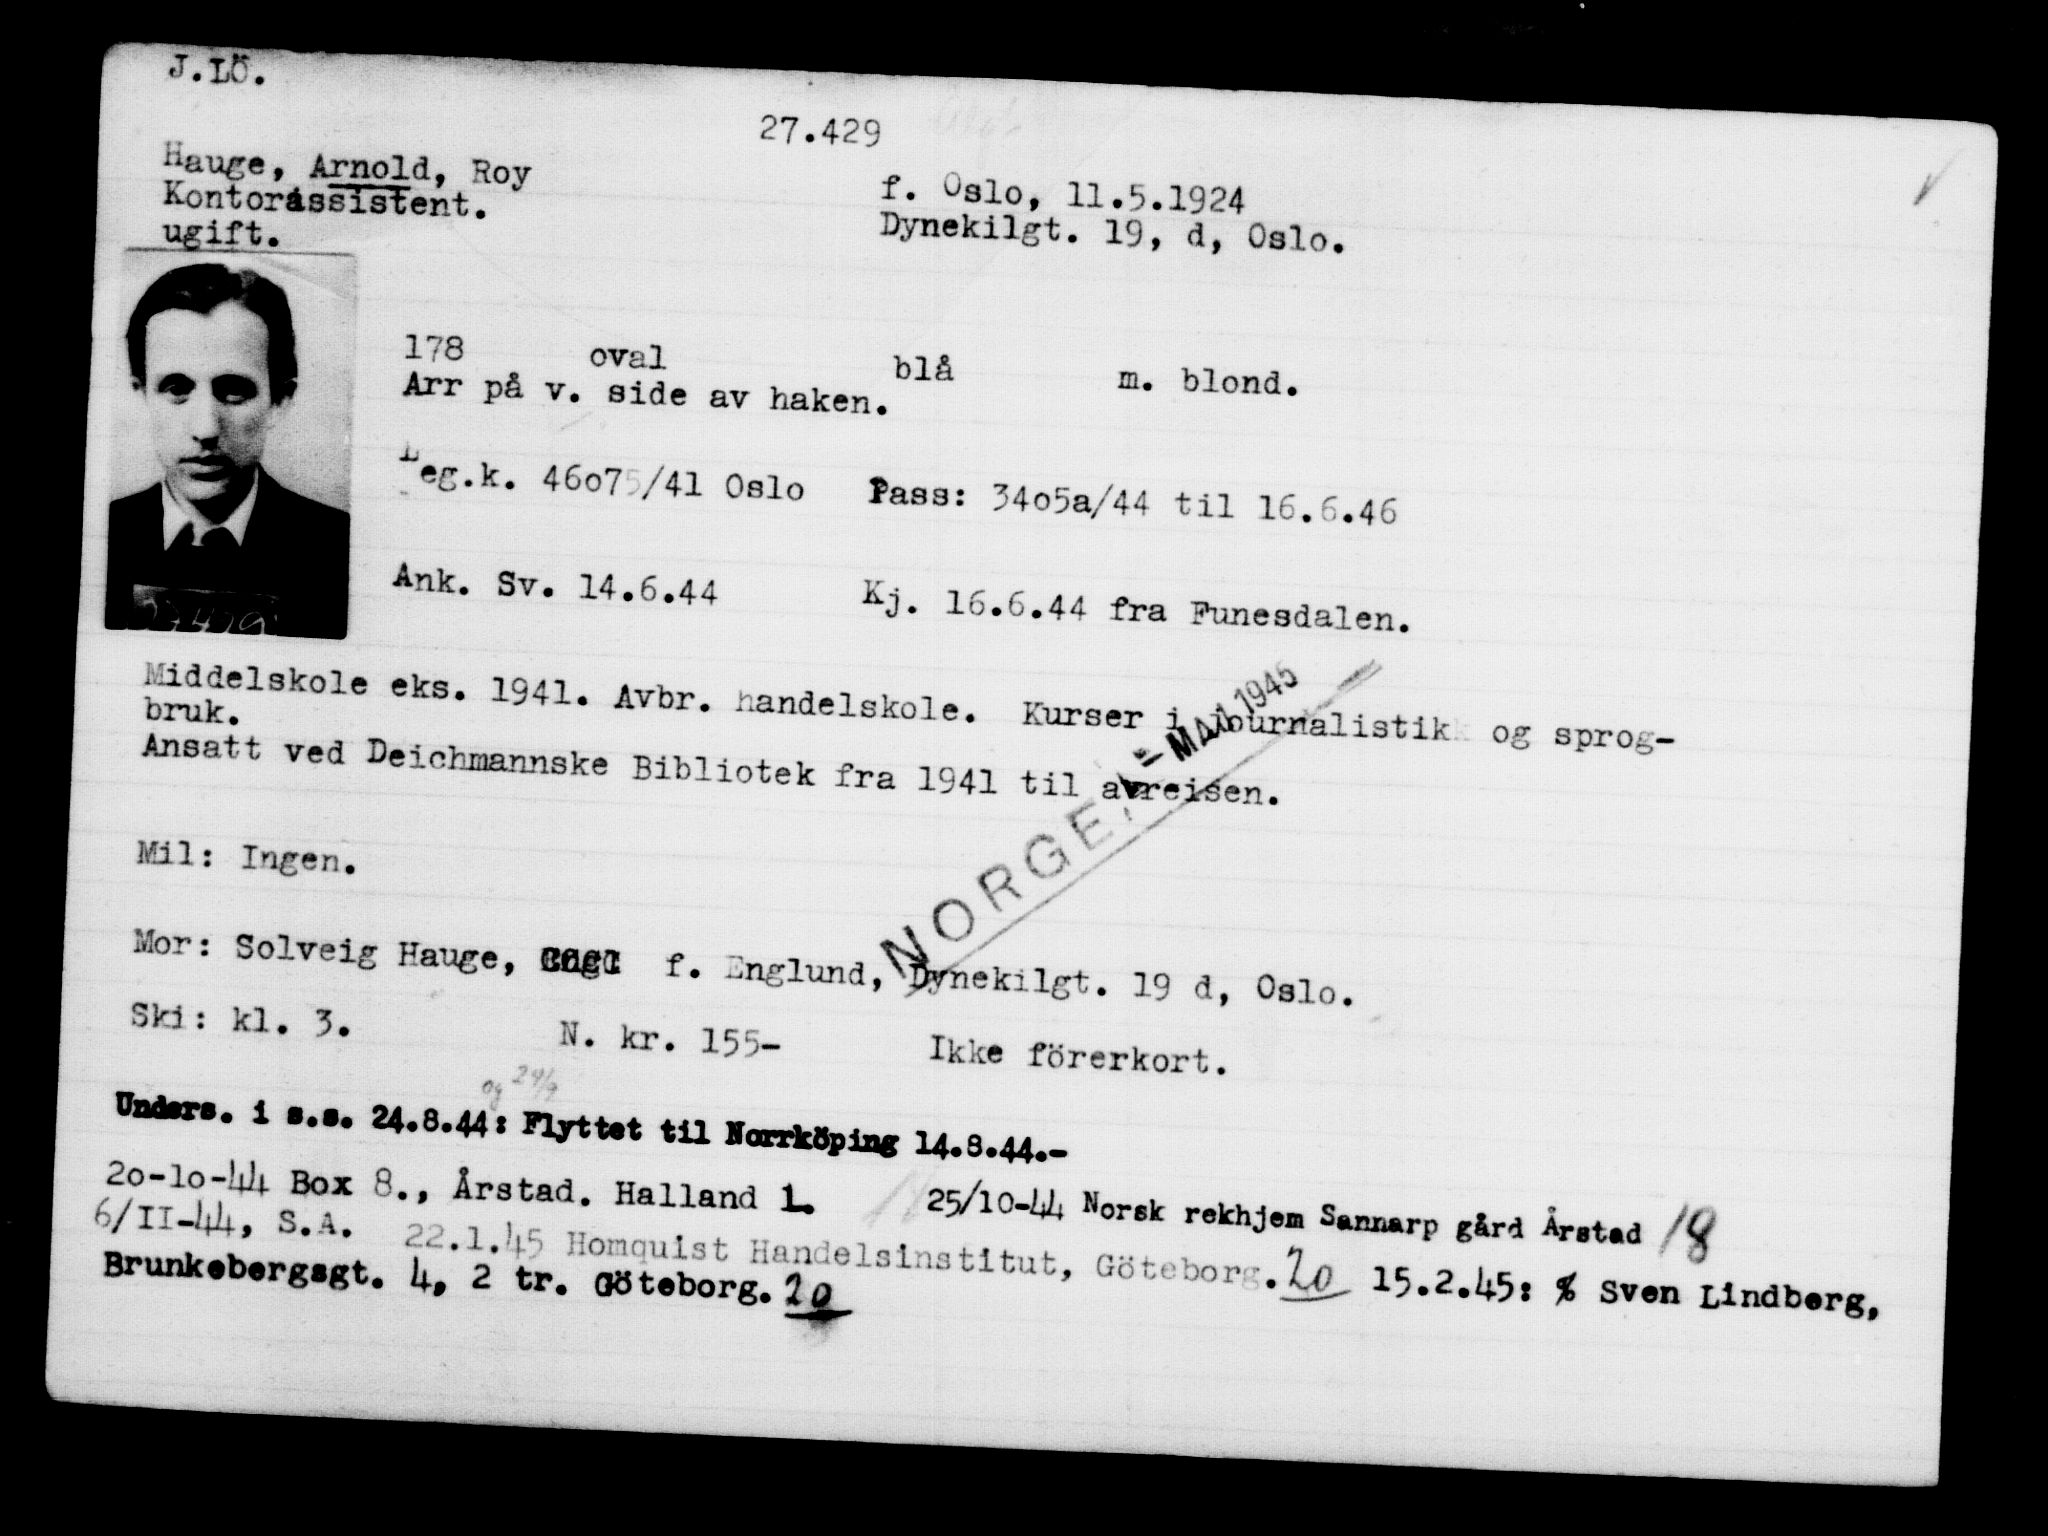 J.LÖ.
27.429
Hauge, Arnold, Roy
f. Oslo, 11.5.1924
Kontorassistent.
Dynekilgt. 19, d, Oslo.
ugift.
178 oval blå m. blond.
Arr på v. side av haken.
Leg.k. 46o75/41 Oslo Pass: 34o5a/44 til 16.6.46
Ank. Sv. 14.6.44 Kj. 16.6.44 fra Funesdalen.
27429
Middelskole eks. 1941. Avbr. handelskole. Kurser i journalistikk og sprog-
bruk.
Ansatt ved Deichmannske Bibliotek fra 1941 til avreisen.
NORGE MAI 1945
Mil: Ingen.
Mor: Solveig Hauge, f. Englund, Dynekilgt. 19 d, Oslo.
Ski: kl. 3. N. kr. 155- Ikke förerkort.
og 24/9
Unders. i s.s. 24.8.44: Flyttet til Norrköping 14.8.44.-
2o-1o-44 Box 8., Årstad. Halland 1. 25/10-44 Norsk rekhjem Sannarp gård Årstad 18
6/II-44, S.A. 22.1.45 Homquist Handelsinstitut, Göteborg. 20 15.2.45: % Sven Lindberg,
Brunkebergsgt. 4, 2 tr. Göteborg. 20